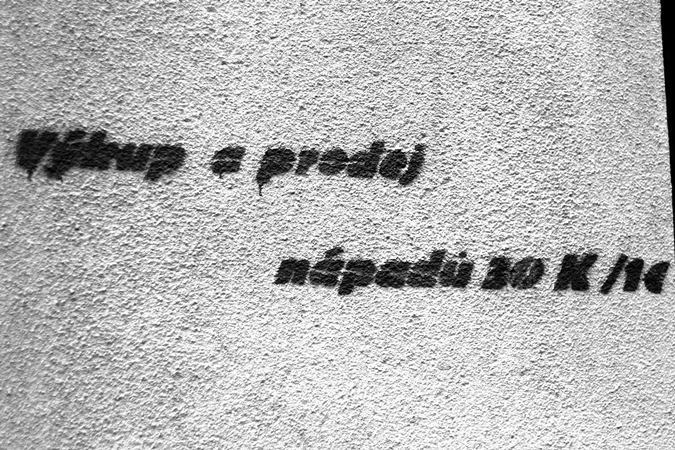 Výkup a prodej
nápadů 20 K /1